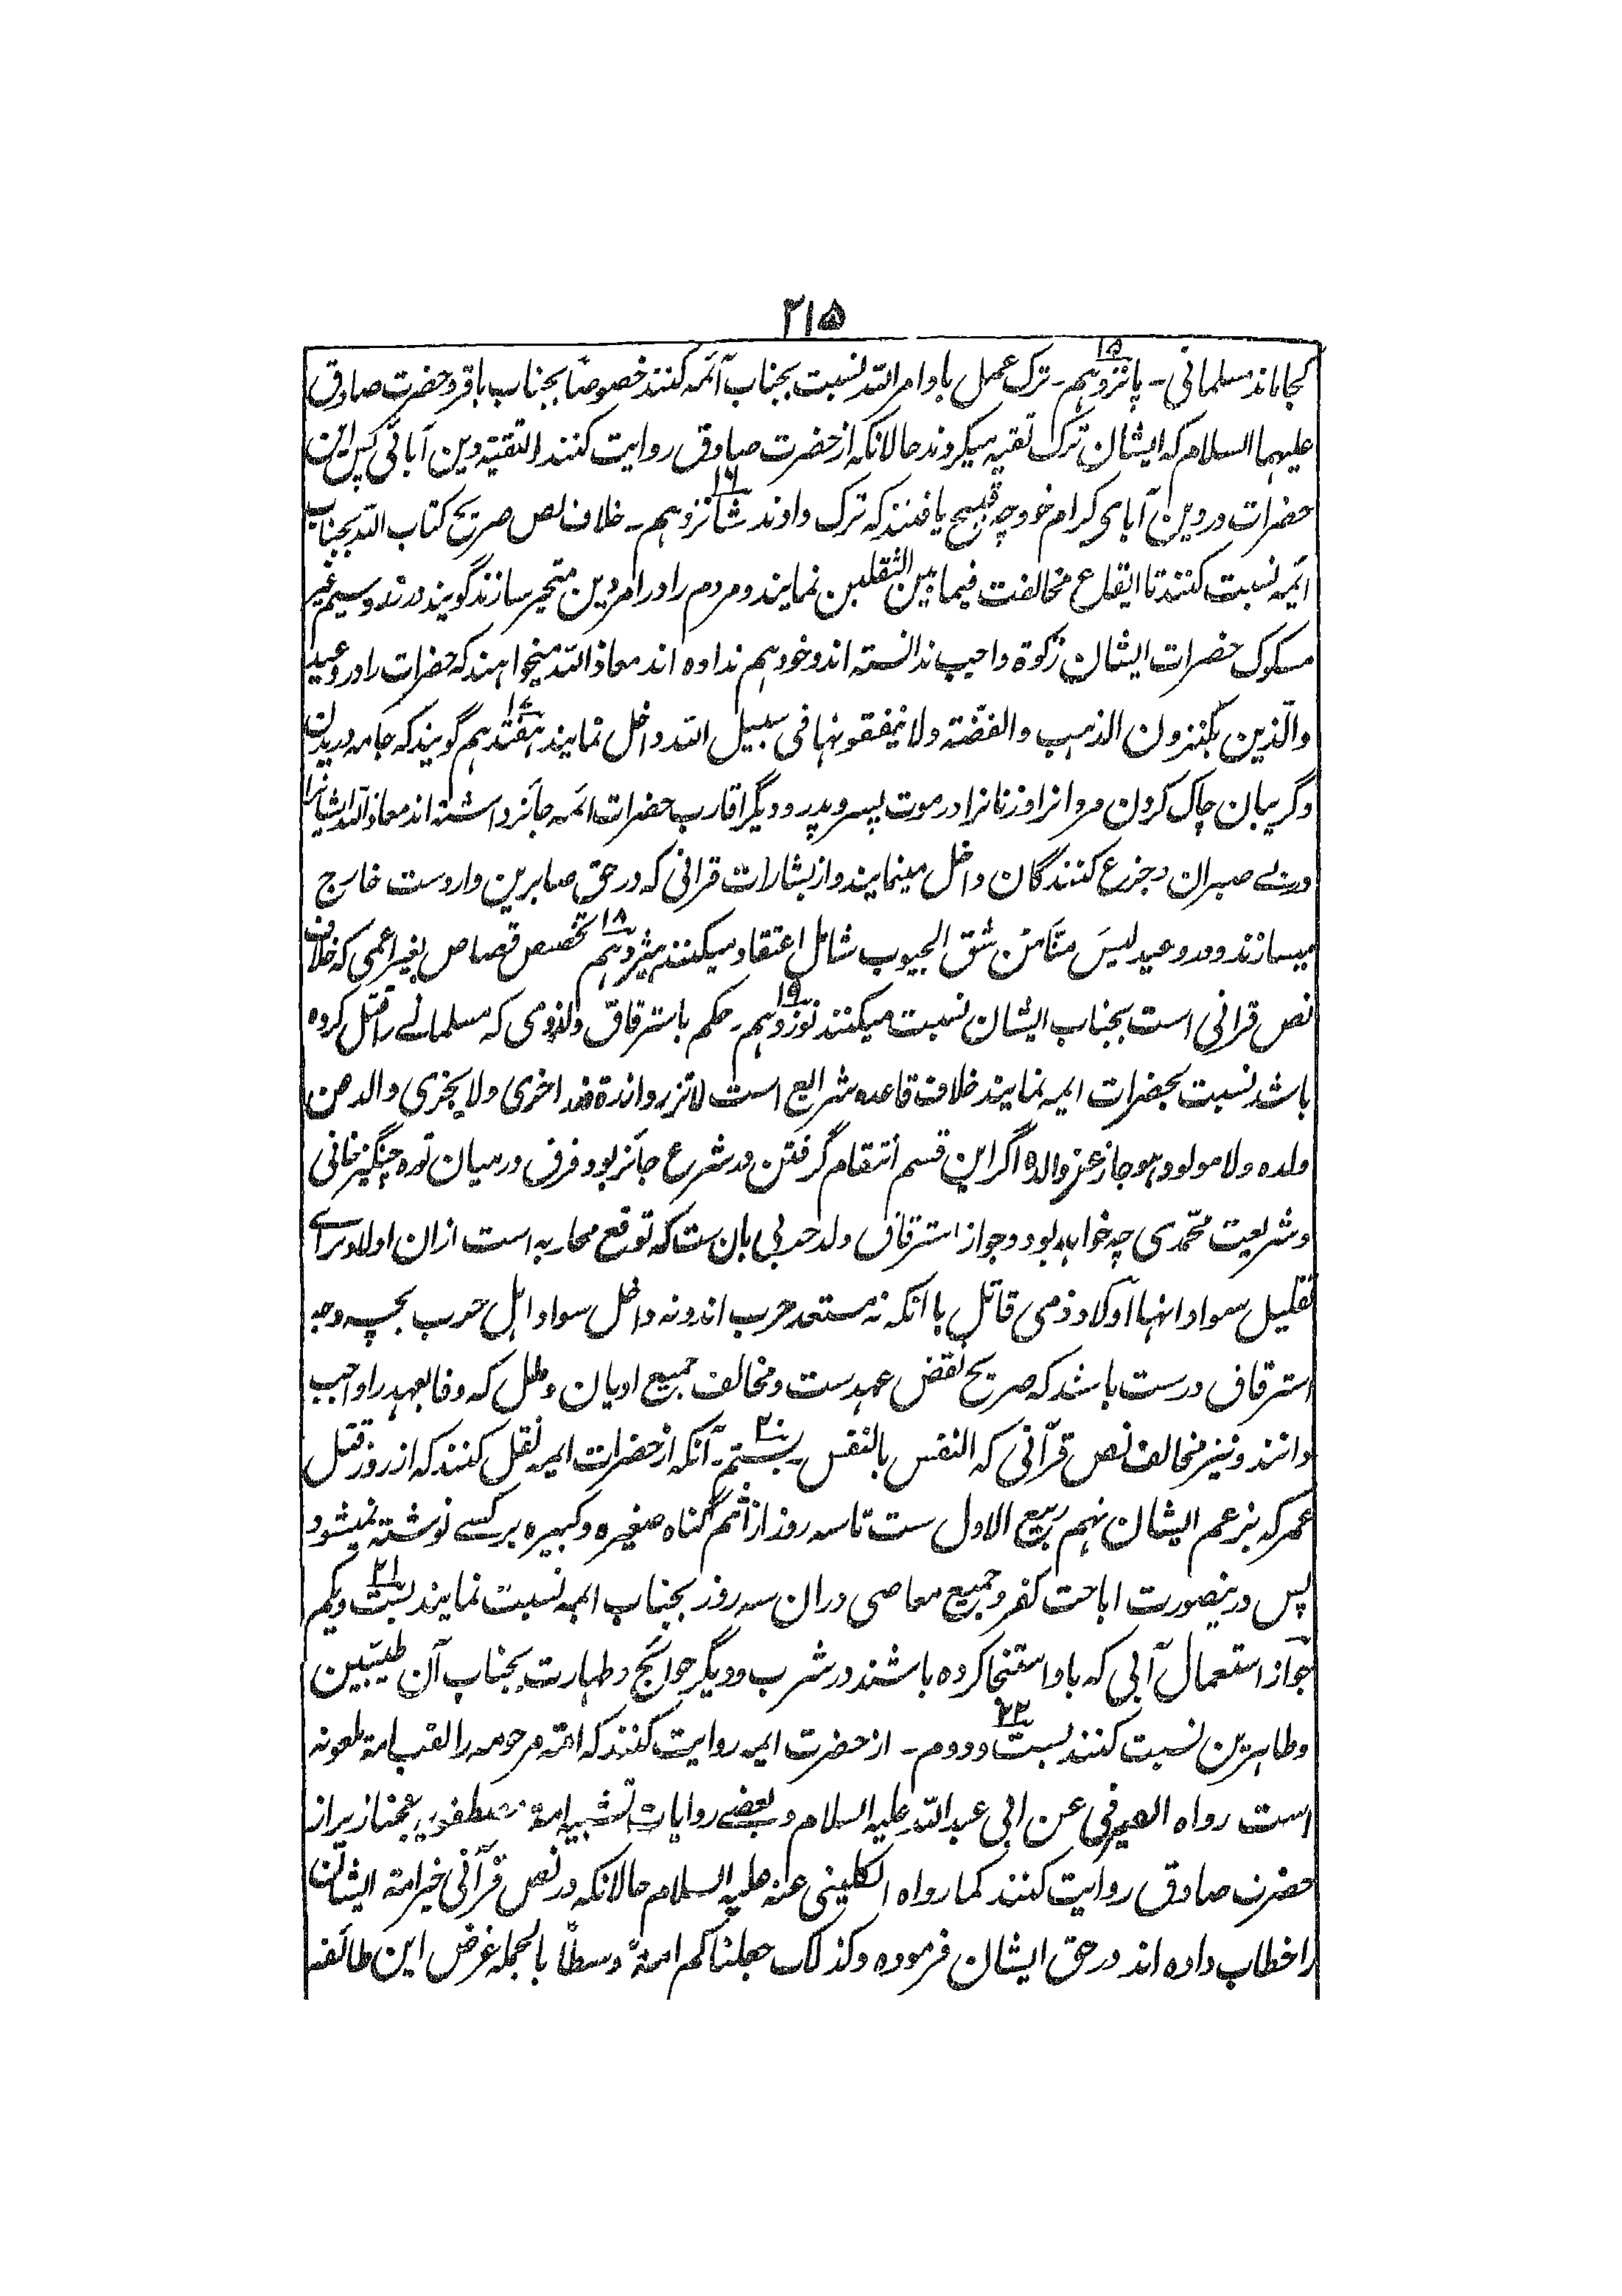 ۲۱۵
کجا ماند مسلمانی - پانزدہم - ترک عمل باوامر اللہ نسبت بجناب آئمہ کنند خصوصاً بجناب باقر و حضرت صادق
علیہما السلام کہ ایشان ترک تقیہ میکردند حالانکہ از حضرت صادق روایت کنند التقیۃ دین آبائی پس این
حضرات در دین آبای کرام خود چہ قبیح یافتند کہ ترک دادند شانزدہم - خلاف نص صریح کتاب اللہ بجناب
ائمہ نسبت کنند تا ایقاع مخالفت فیما بین الثقلین نمایند و مردم را در امر دین متحیر سازند گویند در زر و سیم غیر
مسکوک حضرات ایشان زکوۃ واجب ندانستہ اند و خود ہم ندادہ اند معاذ اللہ میخواہند کہ حضرات را در وعید
والذین یکنزون الذہب والفضۃ ولا ینفقونہا فی سبیل اللہ داخل نمایند ہفتدہم گویند کہ جامہ دریدن
و گریبان چاک کردن مردانرا و زنانرا در موت پسر و پدر و دیگر اقارب حضرات ائمہ جائز داشتہ اند معاذ اللہ ایشانرا
در بے صبران و جزع کنندگان داخل مینمایند و از بشارات قرانی کہ در حق صابرین واردست خارج
میسازند و در وعید لیسَ منّا مَن شق الجیوب شامل اعتقاد میکنند ہیژدہم تخصیص قصاص بغیر اعمی کہ خلاف
نص قرانی است بجناب ایشان نسبت میکنند نوزدہم - حکم باسترقاق ولد ذمی کہ مسلمانے را قتل کردہ
باشد نسبت بحضرات ایمہ نمایند خلاف قاعدہ شرایع است لا تزر وازرۃ وزر اخری ولا یجزی والد عن
ولدہ ولا مولود ہو جاز عن والدہ اگر این قسم انتقام گرفتن در شرع جائز بود فرق درمیان تورہ چنگیز خانی
و شریعت محمدی چہ خواہد بود و جواز استرقاق ولد حربی بان ست کہ توقع محاربہ است ازان اولاد برائے
تقلیل سواد انہا اولاد ذمی قاتل با انکہ نہ مستعد حرب اند و نہ داخل سواد اہل حرب بچہ وجہ
استرقاق درست باشد کہ صریح نقض عہدست و مخالف جمیع ادیان و ملل کہ وفا بعہد را واجب
دانند و نیز مخالف نص قرآنی کہ النفس بالنفس - بستم - آنکہ از حضرات ایمہ نقل کنند کہ از روز قتل
عمر کہ بزعم ایشان نہم ربیع الاول ست تا سہ روز از اثم گناہ صغیرہ و کبیرہ بر کسے نوشتہ نمیشود
پس درینصورت اباحت کفر و جمیع معاصی دران سہ روز بجناب ایمہ نسبت نمایند بست و یکم
جواز استعمال آبی کہ باو استنجا کردہ باشند در شرب و دیگر حوائج و طہارت بجناب آن طیّبین
و طاہرین نسبت کنند بست و دوم - از حضرت ایمہ روایت کنند کہ امۃ مرحومہ را لقب امۃ ملعونہ
است رواہ الصیرفی عن ابی عبد اللہ علیہ السلام و بعضے روایات تشبیہ امۃ مصطفویہ بخنازیر از
حضرت صادق روایت کنند کما رواہ الکلینی عنہ علیہ السلام حالانکہ در نص قرآنی خیر امۃ ایشان
را خطاب دادہ اند در حق ایشان فرمودہ وکذلک جعلناکم امۃً وسطاً بالجملہ غرض این طائفہ